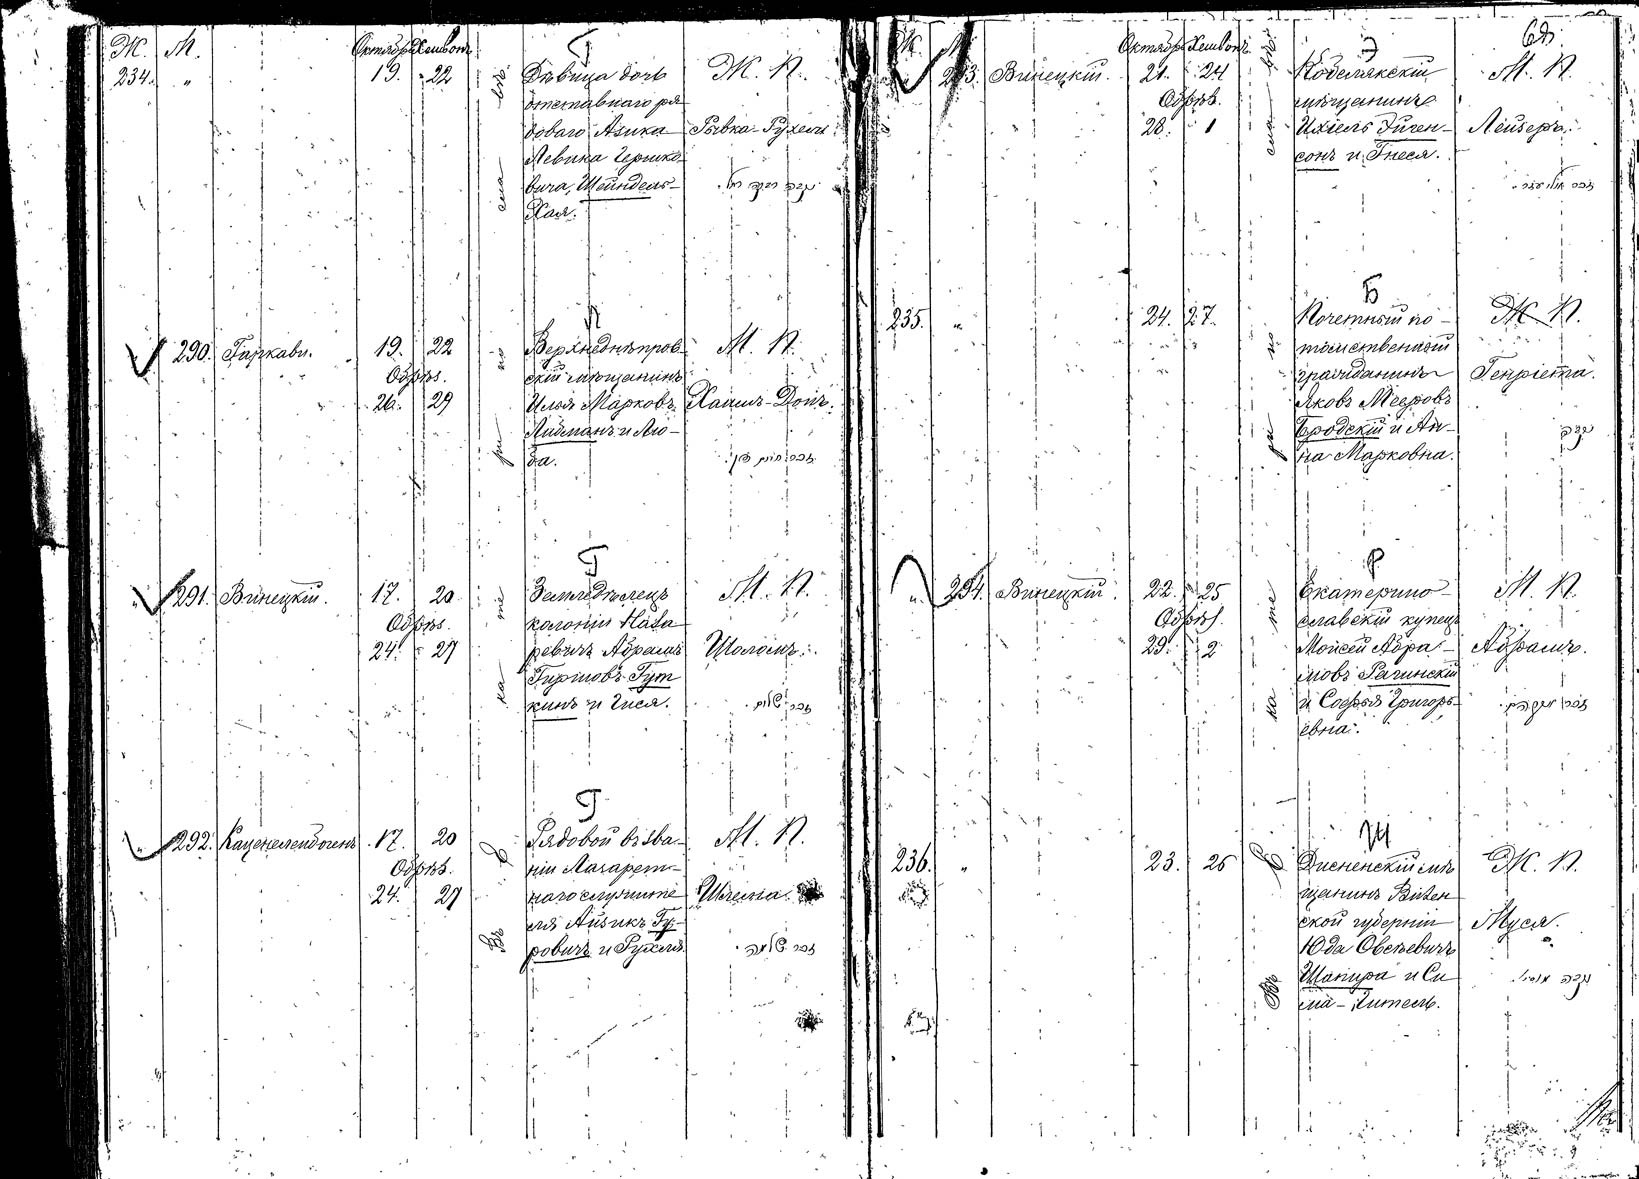 Ж. М. Октябрь Хешвонъ
234. " 19. 22
Г
Дѣвица дочь
отставнаго ря
доваго Азика
Левина Гершко
вича, Шейндель-
Хая.
Ж. П.
Рывка-Рухель
נקבה רבקה רחל
290. Гаркави. 19. 22
Обрѣз.
26. 29
Л
Верхнеднѣпров
скій мѣщанинъ
Илья Марковъ
Либманъ и Лю-
ба.
М. П.
Хаимъ-Донъ.
זכר חיים דן
291. Винецкій. 17. 20
Обрѣз.
24. 27
Г
Земледѣлецъ
колоніи Наза
ревичъ Абрамъ
Гиршовъ Гут
кинъ и Гися.
М. П.
Шоломъ.
זכר שלום
292. Каценеленбогенъ 17. 20
Обрѣз.
24. 27
Г
Рядовой въ зва-
ніи Лазарет-
наго служите
ля Айзикъ Гу-
ровичъ и Рухля.
М. П.
Шлема.
זכר שלמה
Въ Екатеринославѣ
Октябрь Хешвонъ
293. Винецкій. 21. 24
Обрѣз.
28. 1
Э
Кобелякскій
мѣщанинъ
Ихіель Эйген-
сонъ и Гнеся.
М. П.
Лейзеръ.
זכר אליעזר
235. " 24. 27.
Б
Почетный по-
томственный
гражданинъ
Яковъ Мееровъ
Бродскій и Ан-
на Марковна.
Ж. П.
Генріетта.
נקבה
294. Винецкій. 22. 25
Обрѣз.
29. 2
Р
Екатерино-
славскій купецъ
Мойсей Абра-
мовъ Рагинскій
и Софья Григорь-
евна.
М. П.
Абрамъ.
זכר
236. " 23. 26
Ш
Дисненскій мѣ
щанинъ Вилен
ской губерніи
Юда Овсѣевичъ
Шапира и Си
ма-Гитель.
Ж. П.
Муся.
נקבה מוסיא
Въ Екатеринославѣ